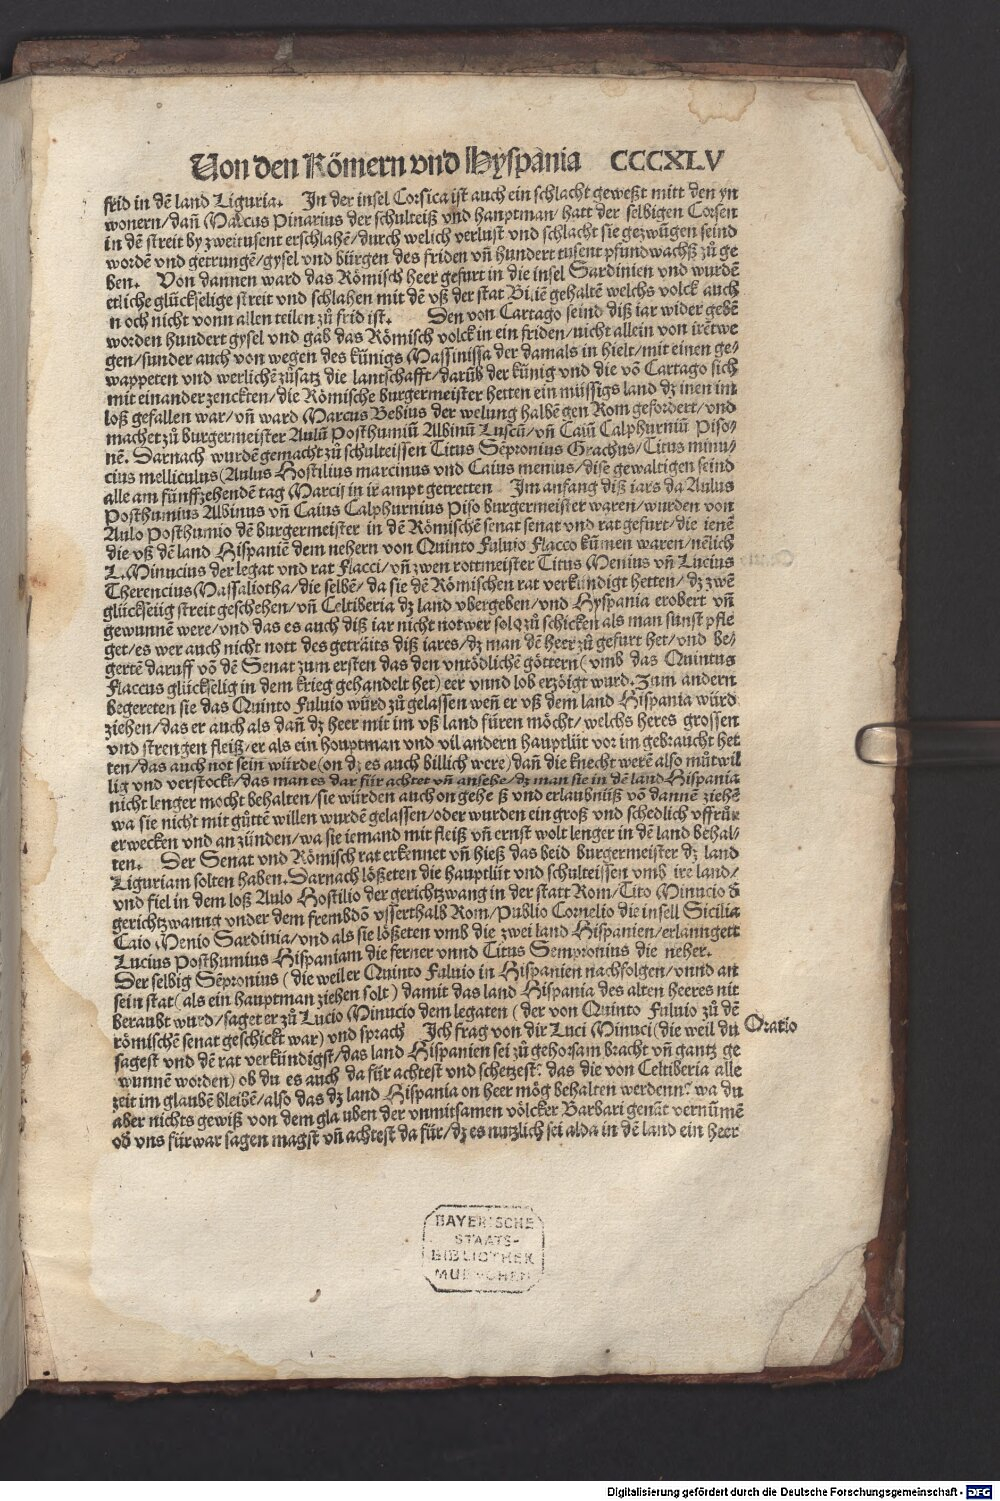 Von den Römern vnd Hyspania CCCXLV
frid in dē land Liguria. In der insel Corsica ist auch ein schlacht geweßt mitt den yn
wonern/dañ Marcus Pinarius der schulteiß vnd hauptman/hatt der selbigen Corsen
in dē streit by zweitusent erschlahē/durch welich verlust vnd schlacht sie gezwūgen seind
wordē vnd getrungē/gysel vnd bürgen des friden vñ hundert tusent pfund wachß zů ge
ben. Von dannen ward das Römisch heer gefurt in die insel Sardinien vnd wurdē
etliche glückselige streit vnd schlahen mit dē vß der stat Iliē gehaltē welchs volck auch
n och nicht vonn allen teilen zů frid ist. Den von Cartago seind diß iar wider gebē
worden hundert gysel vnd gab das Römisch volck in ein friden/nicht allein von irētwe
gen/sunder auch von wegen des künigs Massinissa der damals in hielt/mit einen ge/
wappeten vnd werlichē zůsatz die lantschafft/darūb der künig vnd die vō Cartago sich
mit einander zenckten/die Römische burgermeister hetten ein müssigs land dz inen im
loß gefallen war/vñ ward Marcus Bebius der welung halbē gen Rom gefordert/vnd
machet zů burgermeister Aulū Posthumiū Albinū Luscū/vñ Caiū Calphurniū Piso/
nē. Darnach wurdē gemacht zů schulteissen Titus Sēpronius Grachus/Titus minu/
cius melliculus(Aulus Hostilius marcinus vnd Caius menius/dise gewaltigen seind
alle am fünffzehendē tag Marcij in ir ampt getretten Im anfang diß iars da Aulus
Posthumius Albinus vñ Caius Calphurnius Piso burgermeister waren/wurden von
Aulo Posthumio dē burgermeister in dē Römischē senat senat vnd rat gefurt/die ienē
die vß dē land Hispaniē dem nehern von Quinto Fuluio Flacco kūmen waren/nēlich
L.Minucius der legat vnd rat Flacci/vñ zwen rottmeister Titus Menius vñ Lucius
Therencius Massaliotha/die selbē/da sie dē Römischen rat verkündigt hetten/dz zwē
glückselig streit geschehen/vñ Celtiberia dz land vbergeben/vnd Hyspania erobert vñ
gewunnē were/vnd das es auch diß iar nicht not wer sold zů schicken als man sunst pfle
get/es wer auch nicht nott des geträits diß iares/dz man dē heer zů gefurt het/vnd be/
gertē daruff vō dē Senat zum ersten das den vntödlichē göttern(vmb das Quintus
Flaccus glückselig in dem krieg gehandelt het)eer vnnd lob erzöigt wurd.Zum andern
begereten sie das Quinto Fuluio würd zů gelassen weñ er vß dem land Hispania würd
ziehen/das er auch als dañ dz heer mit im vß land füren möcht/welchs heres grossen
vnd strengen fleiß/er als ein houptman vnd vil andern hauptlüt vor im gebraucht het
ten/das auch not sein würde(on dz es auch billich were)dañ die knecht werē also můtwil
lig vnd verstockt/das man es dar für achtet vñ ansehe/dz man sie in dē land Hispania
nicht lenger mocht behalten/sie würden auch on gehe ß vnd erlaubnüß vō dannē ziehē
wa sie nicht mit gůttē willen wurdē gelassen/oder wurden ein groß vnd schedlich vffrůr
erwecken vnd an zünden/wa sie iemand mit fleiß vñ ernst wolt lenger in dē land behal/
ten. Der Senat vnd Römisch rat erkennet vñ hieß das beid burgermeister dz land
Liguriam solten haben.Darnach lößeten die hauptlüt vnd schulteissen vmb ire land/
vnd fiel in dem loß Aulo Hostilio der gerichtzwang in der statt Rom/Tito Minucio d̄
gerichtzwanng vnder dem frembdō vsserthalb Rom/Publio Cornelio die insell Sicilia
Caio Menio Sardinia/vnd als sie lößeten vmb die zwei land Hispanien/erlanngett
Lucius Posthumius Hispaniam die ferner vnnd Titus Sempronius die neher.
Der selbig Sēpronius (die weil er Quinto Fuluio in Hispanien nachfolgen/vnnd an
sein stat(als ein hauptman ziehen solt) damit das land Hispania des alten heeres nit
beraubt wurd/saget er zů Lucio Minucio dem legaten (der von Quinto Fuluio zů dē
römischē senat geschickt war) vnd sprach Ich frag von dir Luci Minuci(die weil du Oratio
sagest vnd dē rat verkündigst/das land Hispanien sei zů gehorsam bracht vñ gantz ge
wunnē worden) ob du es auch da für achtest vnd schetzest? das die von Celtiberia alle
zeit im glaubē bleibē/also das dz land Hispania on heer mög behalten werdenn? wa du
aber nichts gewiß von dem gla uben der vnmitsamen völcker Barbari genāt vernūmē
ob vns fürwar sagen magst vñ achtest da für/dz es nutzlich sei alda in dē land ein heer
BAYERISCHE
STAATS-
BIBLIOTHEK
MUENCHEN
Digitalisierung gefördert durch die Deutsche Forschungsgemeinschaft - DFG